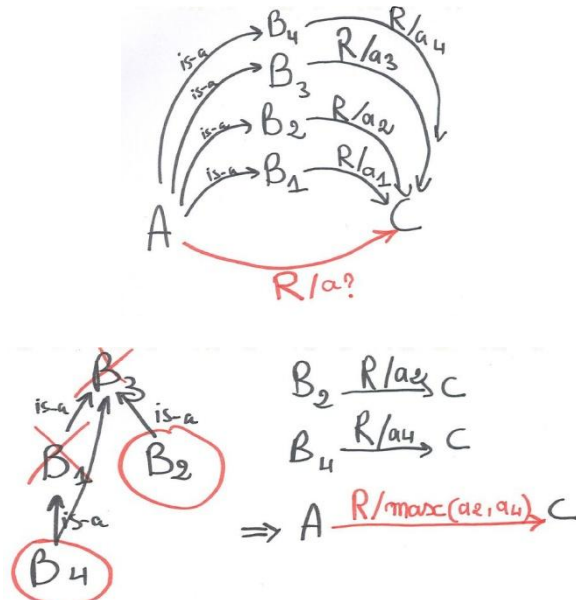 B4 R/a4
is-a
R/a3
is-a B3
is-a B2 R/a2
is-a B1 R/a1
A C
R/a?
B3
is-a is-a
B1 B2
is-a
B4
B2 R/a2 C
B4 R/a4 C
⇒ A R/max(a2,a4) C